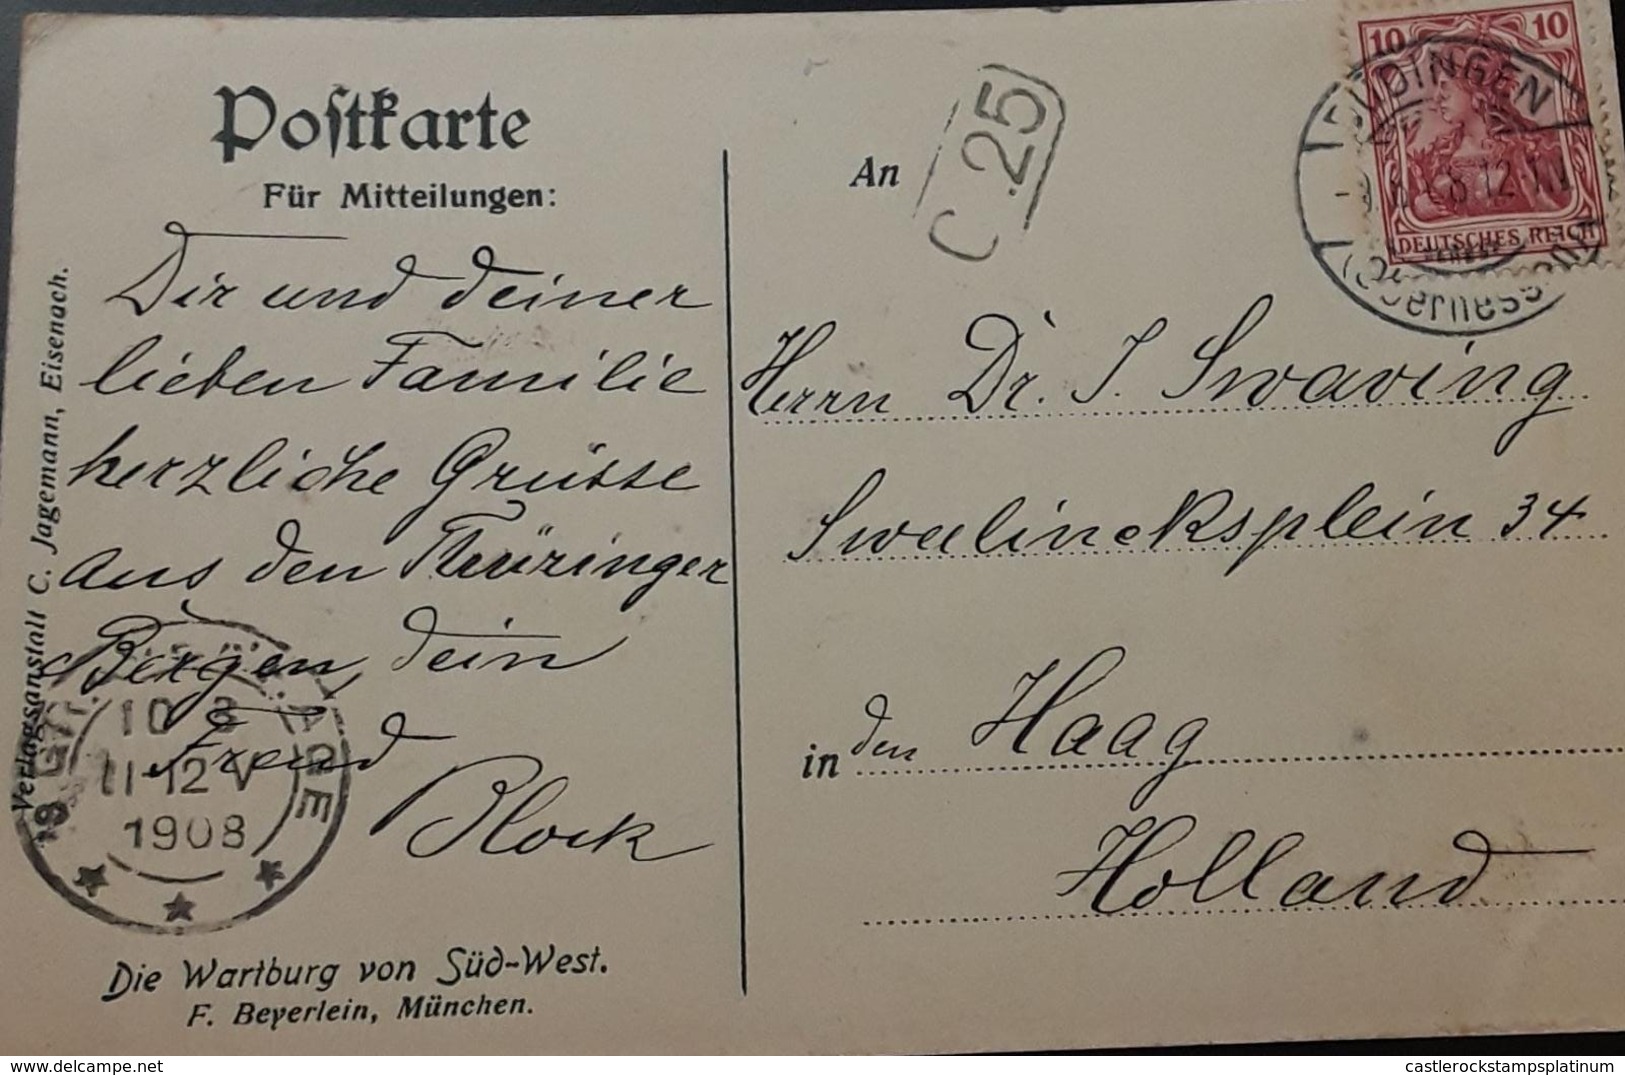 Postkarte
Für Mitteilungen:
Dir und deiner
lieben Familie
herzliche Grüsse
aus den Thüringer
Bergen, dein
Freund
Block
Verlagsanstalt C. Jagemann, Eisenach.
10 8
11-12 V
1908
Die Wartburg von Süd-West.
F. Beyerlein, München.
C.25
An
10 10
DEUTSCHES REICH
BÜDINGEN
(Oberhessen)
Herrn Dr. J. Swaving
Sweelincksplein 34
in den Haag
Holland
castlerockstampsplatinum